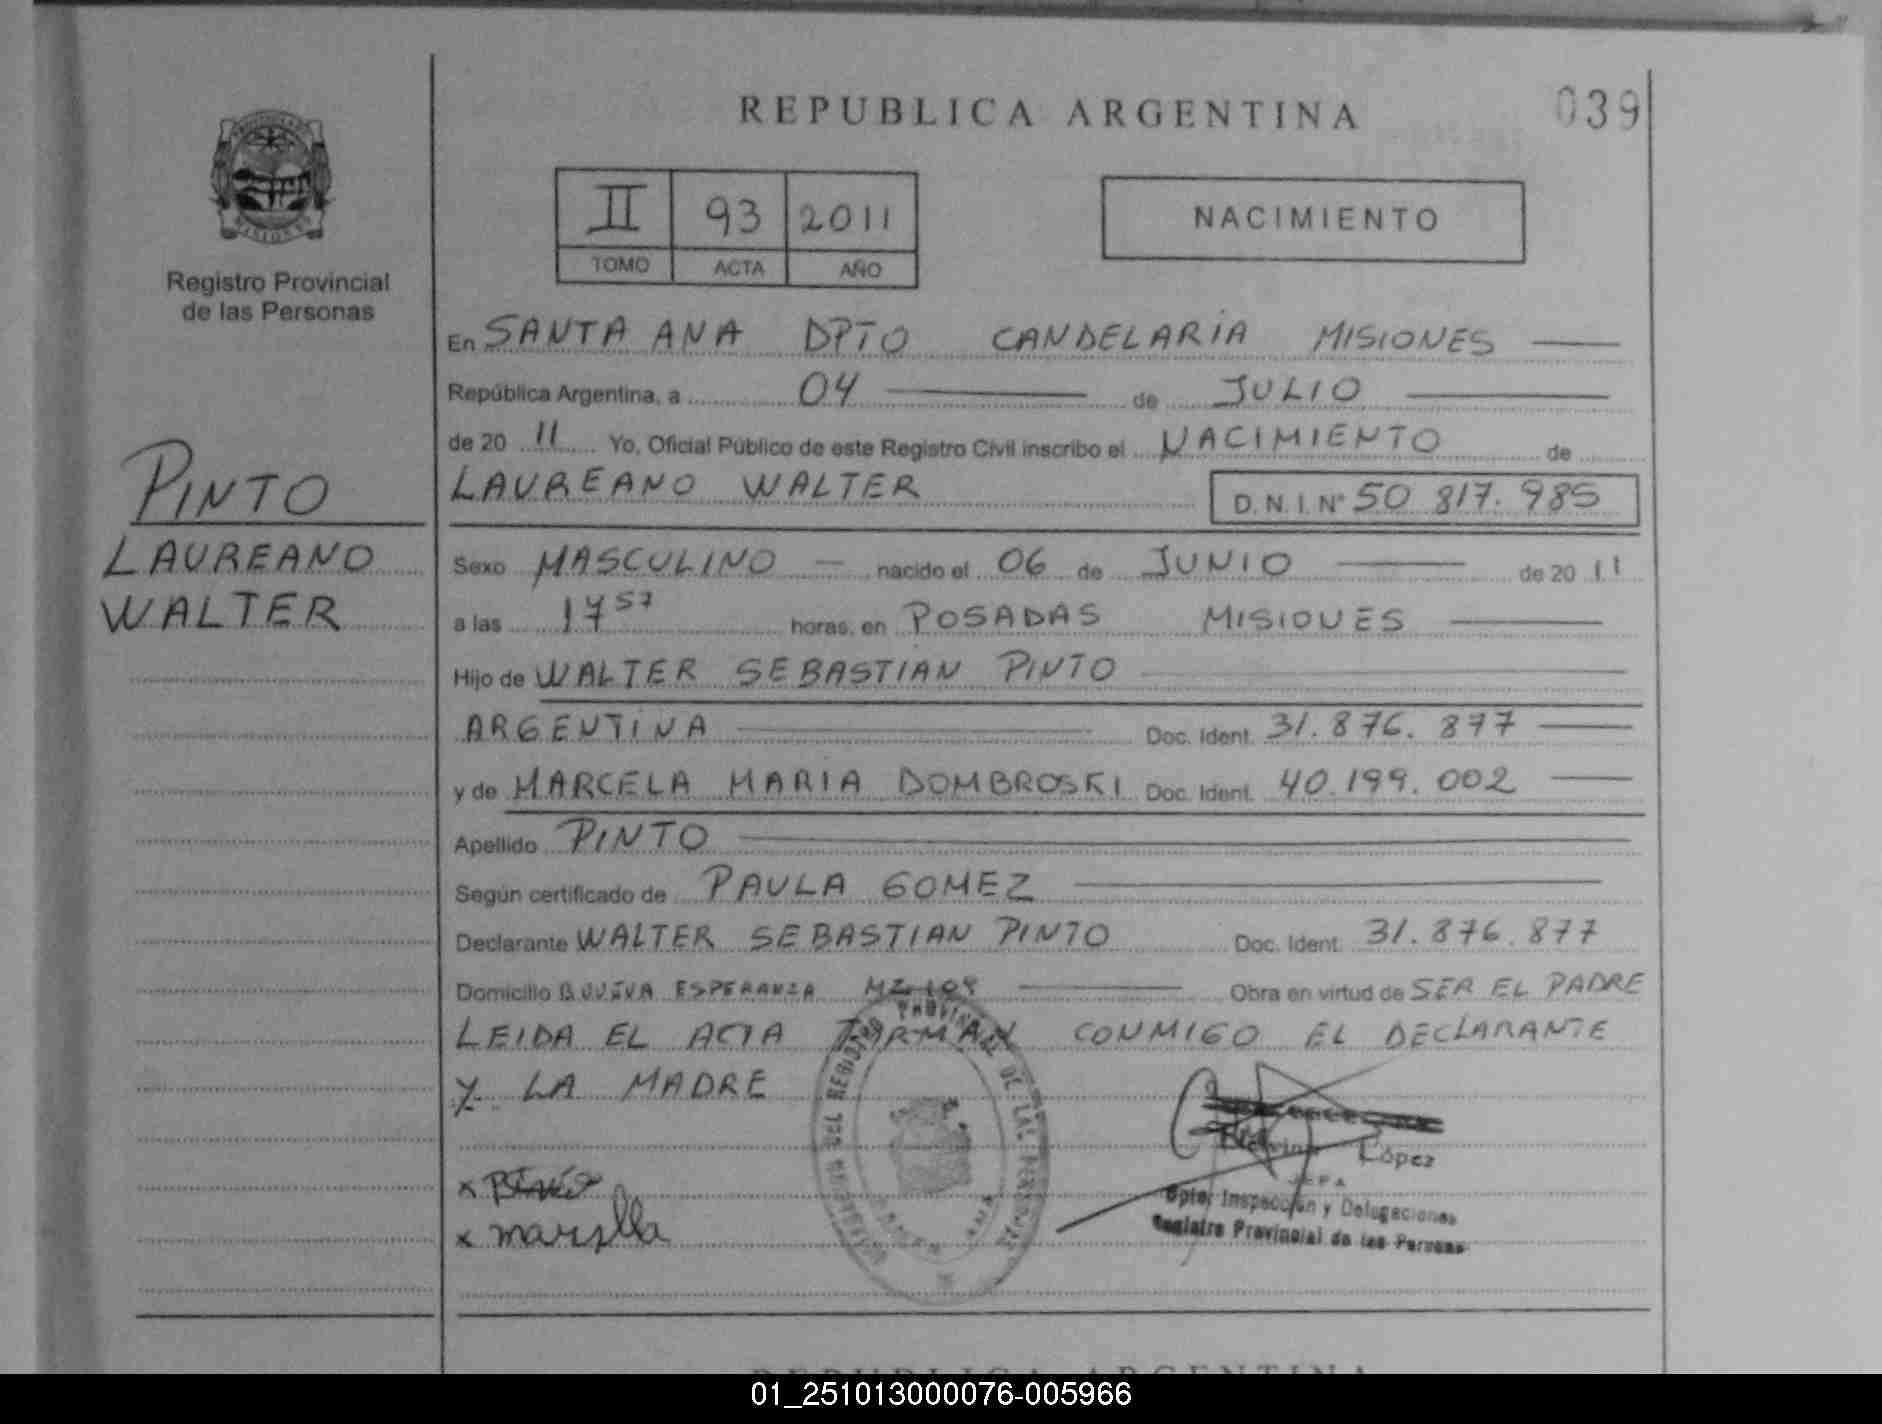 REPUBLICA ARGENTINA
039
II 93 2011
TOMO ACTA AÑO
NACIMIENTO
Registro Provincial
de las Personas
PINTO
LAUREANO
WALTER
En SANTA ANA DPTO CANDELARIA MISIONES
República Argentina, a 04 de JULIO
de 20 11 Yo, Oficial Público de este Registro Civil inscribo el NACIMIENTO de
LAUREANO WALTER D.N.I. Nº 50.817.985
Sexo MASCULINO nacido el 06 de JUNIO de 20 11
a las 17 57 horas, en POSADAS MISIONES
Hijo de WALTER SEBASTIAN PINTO
ARGENTINA Doc. Ident. 31.876.877
y de MARCELA MARIA DOMBROSKI Doc. Ident. 40.199.002
Apellido PINTO
Según certificado de PAULA GOMEZ
Declarante WALTER SEBASTIAN PINTO Doc. Ident. 31.876.877
Domicilio ESPERANZA MZ 109 Obra en virtud de SER EL PADRE
LEIDA EL ACTA CONMIGO EL DECLARANTE
Y LA MADRE
López
JEFA
Dpto. Inspección y Delegaciones
Registro Provincial de las Personas
REPUBLICA ARGENTINA
01_251013000076-005966